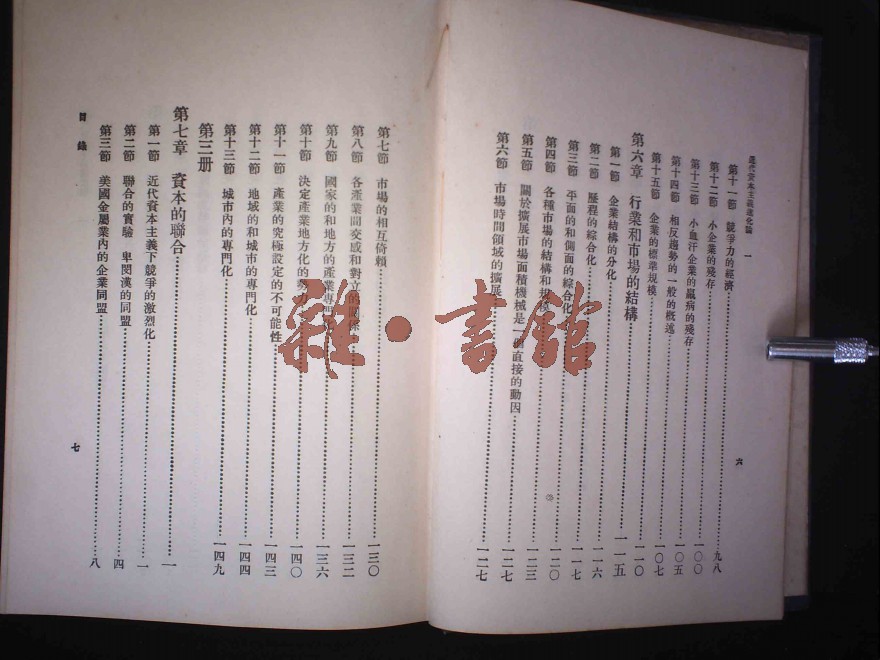 近代資本主義進化論 一
第十一節 競爭力的經濟……九八
第十二節 小企業的殘存……一〇〇
第十三節 小血汗企業的羸病的殘存……一〇五
第十四節 相反趨勢的一般的概述……一〇七
第十五節 企業的標準規模……一一〇
第六章 行業和市場的結構……一一五
第一節 企業結構的分化……一一六
第二節 歷程的綜合化……一一七
第三節 平面的和側面的綜合化……一二〇
第四節 各種市場的結構和規模……一二三
第五節 關於擴展市場面積機械是一個直接的動因……一二七
第六節 市場時間領域的擴展……一二七
六
第七節 市場的相互倚賴……一三〇
第八節 各產業間交感和對立的關係……一三二
第九節 國家的和地方的產業專門化……一三六
第十節 決定產業地方化的勢力……一四〇
第十一節 產業的究極設定的不可能性……一四三
第十二節 地域的和城市的專門化……一四四
第十三節 城市內的專門化……一四九
第三册
第七章 資本的聯合……一
第一節 近代資本主義下競爭的激烈化……一
第二節 聯合的實驗 卑閔漢的同盟……四
第三節 美國金屬業內的企業同盟……八
目錄
七
雜·書館